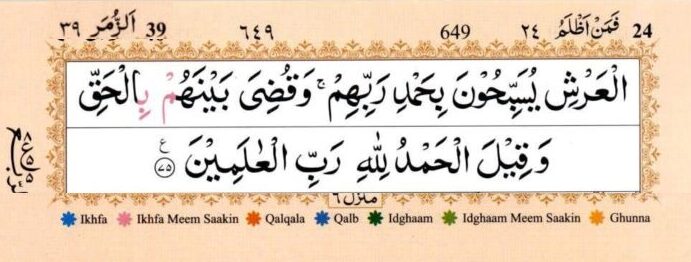 اَلزُّمَر 39 ٣٩ 649 ٦٤٩ فَمَنْ اَظْلَمُ 24 ٢٤
الْعَرْشِ يُسَبِّحُوْنَ بِحَمْدِ رَبِّهِمْ ۚ وَقُضِىَ بَيْنَهُمْ بِالْحَقِّ
وَقِيْلَ الْحَمْدُ لِلّٰهِ رَبِّ الْعٰلَمِيْنَ ﴿٧٥﴾ ع
منزل ٦
Ikhfa Ikhfa Meem Saakin Qalqala Qalb Idghaam Idghaam Meem Saakin Ghunna